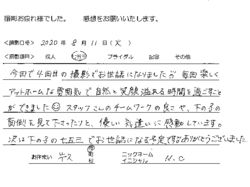 撮影お疲れ様でした。 感想をお願いいたします。
<撮影日> 2020年8月11日(火)
成人 七五三 ブライダル 記念 その他
今回で4回目の撮影でお世話になりましたが 毎回楽しく
アットホームな雰囲気で自然と笑顔溢れる時間を過ごすこと
ができました☺ スタッフさんのチームワークの良さや、下の子の
面倒も見て下さったりと、優しい気遣いに感動しています。
次は下の子の七五三でお世話になる予定です ありがとうございました
お住まい 市 町 ニックネーム イニシャル N.C